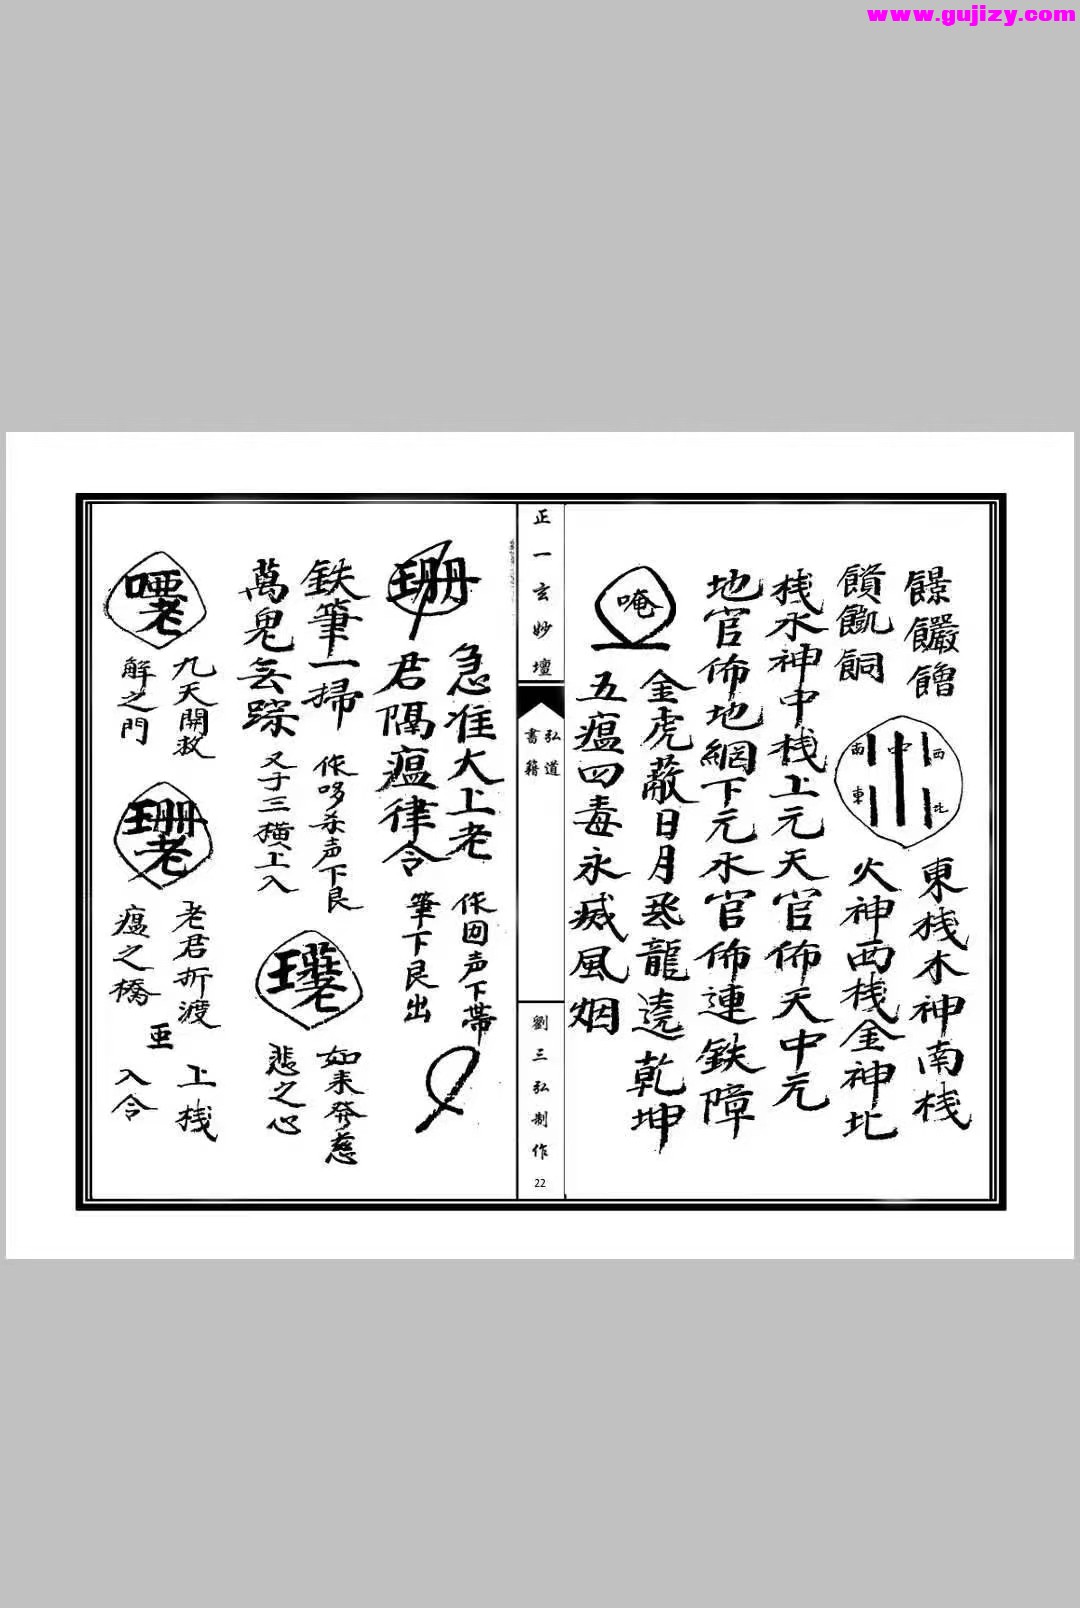 www.gujizy.com
西
中
南
北
東
東栈木神南栈
火神西栈金神北
栈水神中栈上元天官佈天中元
地官佈地網下元水官佈連鉄障
唵
金虎蔽日月丞龍遶乾坤
五瘟四毒永烕風烟
正一玄妙壇
弘道
書籍
劉三弘制作
22
珊
急准大上老
君隔瘟律令
作囡声下帶
筆下良出
鉄筆一掃
萬鬼无踪
作哆杀声下良
又于三横上入
如来発慈
悲之心
九天開赦
解之門
老君折渡
瘟之橋
上栈
入令